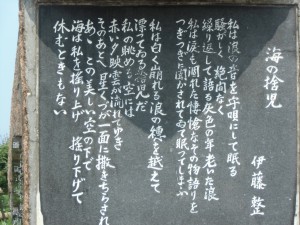 海の捨児
伊藤整
私は浪の音を守唄にして眠る
騒がしく 絶間なく
繰り返して語る灰色の年老いた浪
私は涙も涸れた悽愴なその物語りを
つぎつぎに聞かされてゐて眠ってしまふ
私は白く崩れる浪の穂を越えて
漂ってゐる捨児だ
私の眺める空には
赤い夕映雲が流れてゆき
そのあとへ星くづが一面に撒きちらされる
あゝこの美しい空の下で
海は私を揺り上げ 揺り下げて
休むときもない